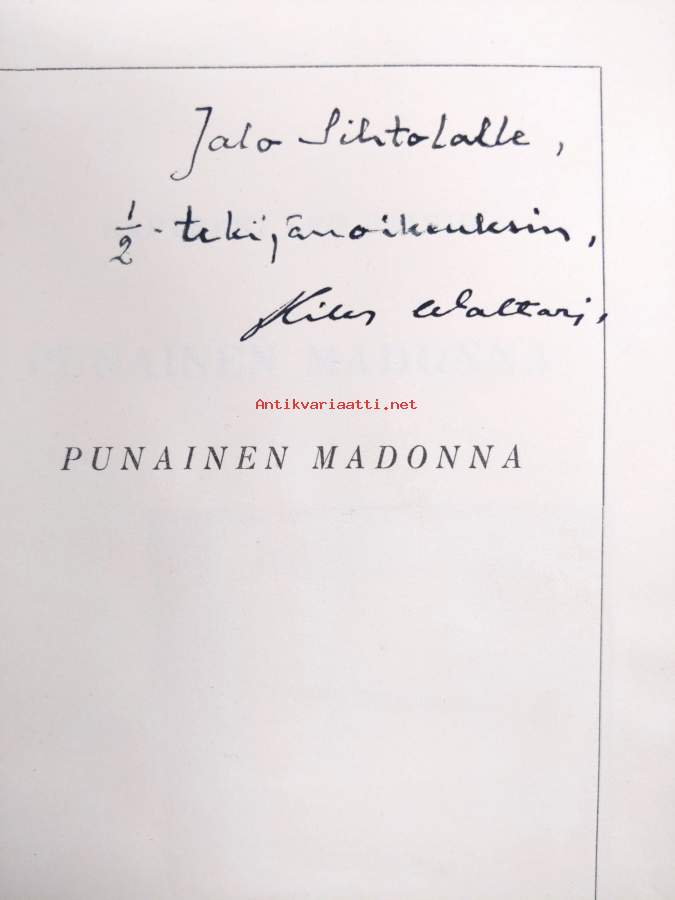 Jalo Sihtolalle,
1/2-tekijänoikeuksin,
Mika Waltari.
Antikvariaatti.net
PUNAINEN MADONNA